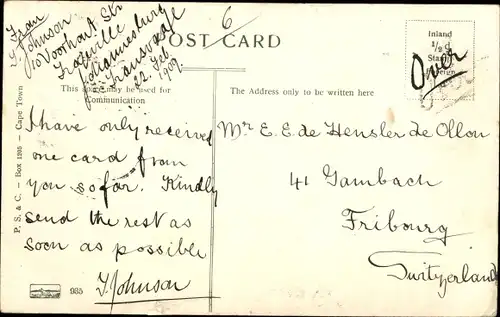 From
T. Johnson
10 Voorhout Str
Johannesburg
Transvaal
22. Feb.
1909.
6
POST CARD
Inland
1/2 d
Stamp
Foreign
Over
This space may be used for
Communication
The Address only to be written here
I have only received
one card from
you so far. Kindly
send the rest as
soon as possible
T. Johnson
Mr E. E. de Hensler de Ollon
41 Gambach
Fribourg
Switzerland
P. S. & C. - Box 1205 - Cape Town
985